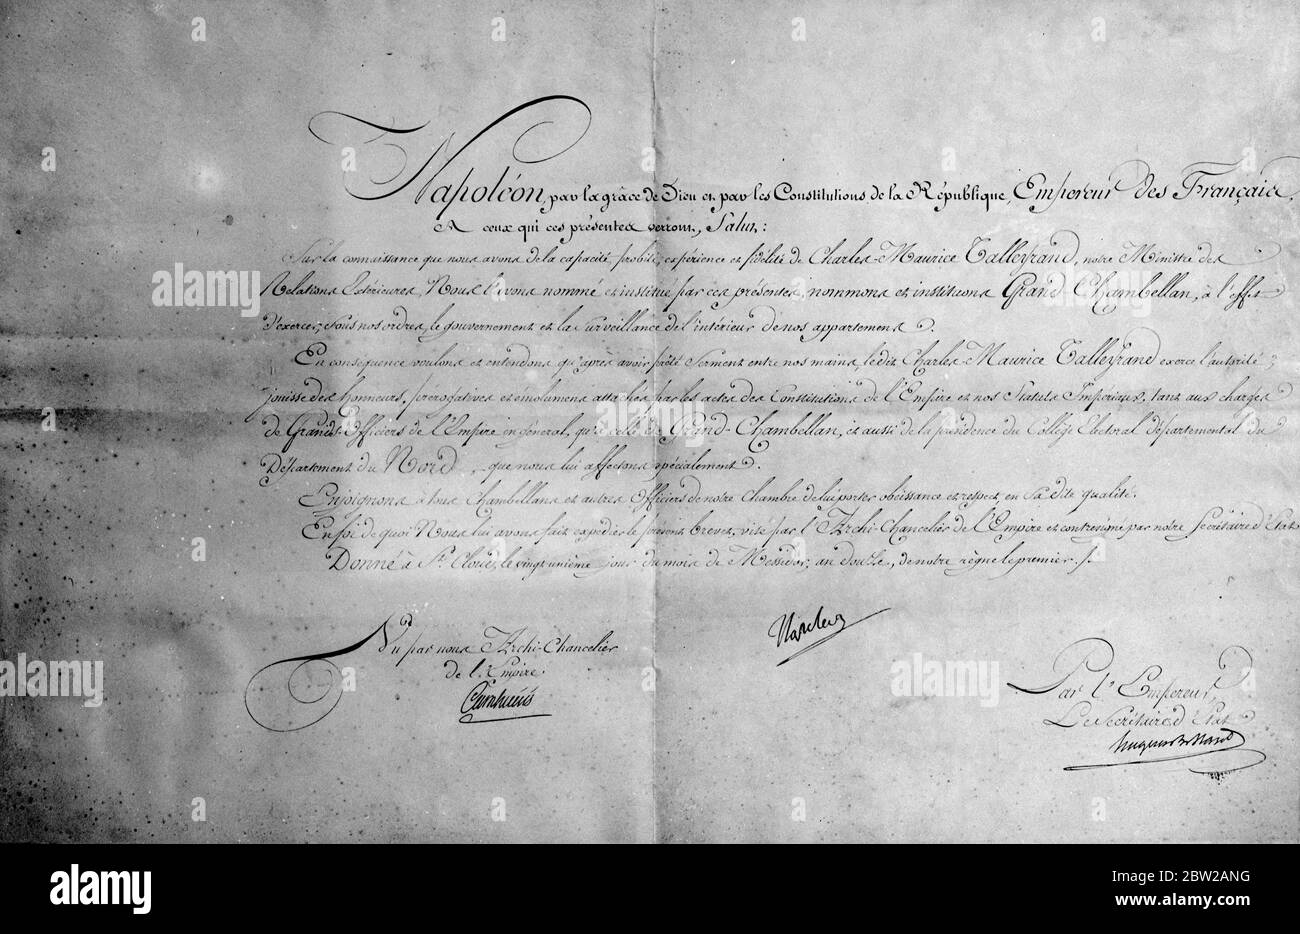 Napoléon, par la grâce de Dieu et par les Constitutions de la République, Empereur des Français,
A ceux qui ces présentes verront, Salut:
Sur la connaissance que nous avons de la capacité, probité, expérience et fidélité de Charles-Maurice Talleyrand, notre Ministre des
Relations Extérieures, Nous l'avons nommé et institué par ces présentes, nommons et instituons Grand Chambellan, à l'effet
d'exercer, sous nos ordres, le gouvernement et la surveillance de l'intérieur de nos appartemens.
En conséquence voulons et entendons qu'après avoir prêté Serment entre nos mains, le dit Charles-Maurice Talleyrand exerce l'autorité,
jouisse des honneurs, prérogatives et émolumens attachés par les actes des Constitutions de l'Empire et nos Statuts Impériaux, tant aux charges
de Grands Officiers de l'Empire en général, qu'à celle de Grand-Chambellan, et aussi de la présidence du Collège Electoral départemental du
Département du Nord, que nous lui affectons spécialement.
Enjoignons à tous Chambellans et autres Officiers de notre Chambre de lui porter obéissance et respect, en sa dite qualité.
En foi de quoi Nous lui avons fait expédier le présent brevet, visé par l'Archi-Chancelier de l'Empire et contresigné par notre Secrétaire d'Etat.
Donné à St. Cloud, le vingt unième jour du mois de Messidor, an douze, de notre règne le premier.
Vu par nous Archi-Chancelier
de l'Empire.
Cambacérès
Napoléon
Par l'Empereur,
Le Secrétaire d'Etat
Hugues B. Maret
alamy
Image ID: 2BW2ANG
www.alamy.com